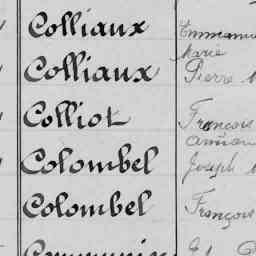 Colliaux
Marie
Colliaux Pierre
Colliot François
Colombel Joseph
Colombel François